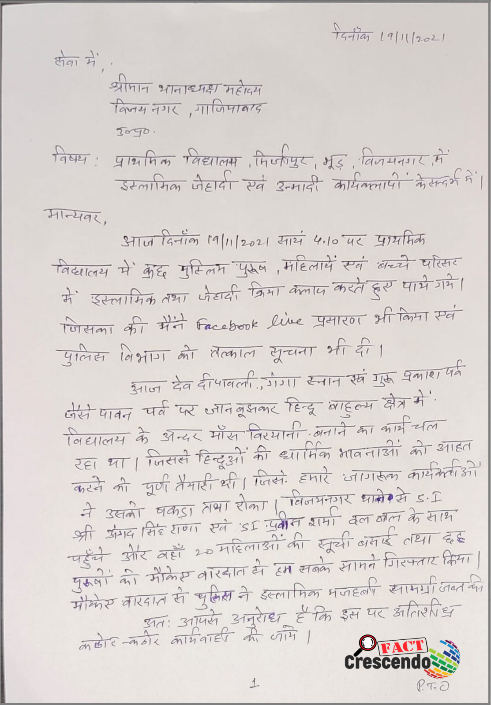 दिनाँक 19/11/2021
सेवा में,
श्रीमान थानाध्यक्ष महोदय
विजयनगर, गाजियाबाद
उ०प्र०
विषय: प्राथमिक विद्यालय, मिर्जापुर, भूड़, विजयनगर, में
इस्लामिक जेहादी एवं उन्मादी कार्यकलापों के सन्दर्भ में।
मान्यवर,
आज दिनाँक 19/11/2021 सायं 4.10 पर प्राथमिक
विद्यालय में कुछ मुस्लिम पुरूष, महिलायें एवं बच्चे परिसर
में इस्लामिक तथा जेहादी क्रिया कलाप करते हुए पाये गये।
जिसका की मैंने Facebook live प्रसारण भी किया एवं
पुलिस विभाग को तत्काल सूचना भी दी।
आज देव दीपावली, गंगा स्नान एवं गुरू प्रकाश पर्व
जैसे पावन पर्व पर जानबूझकर हिन्दू बाहुल्य क्षेत्र में
विद्यालय के अन्दर माँस बिरयानी बनाने का कार्य चल
रहा था। जिससे हिन्दूओं की धार्मिक भावनाओं को आहत
करने की पूर्ण तैयारी थी। जिसे हमारे जागरूक कार्यकर्ताओं
ने उसको पकड़ा तथा रोका। विजयनगर थाने से S.I
श्री अंगद सिंह राणा एवं SI शर्मा दल बल के साथ
पहुँचे और वहाँ 20 महिलाओं की सूची बनाई तथा
पुरूषों को मौकाए वारदात से हम सबके सामने गिरफ्तार किया।
मौकाए वारदात से पुलिस ने इस्लामिक मजहबी सामग्री जब्त की
अतः आपसे अनुरोध है कि इस पर अतिशीघ्र
कठोर-कठोर कार्यवाही की जाये।
1
P.T.O
FACT
Crescendo